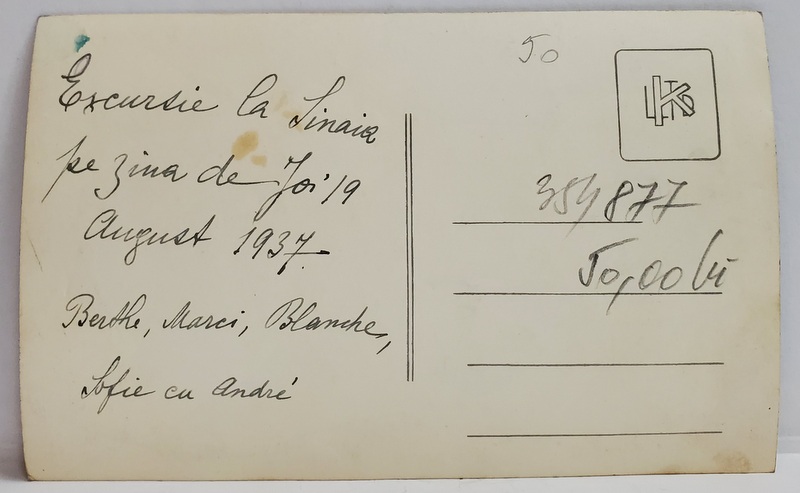 Excursie la Sinaia
pe ziua de Joi 19
August 1937.
Berthe, Marci, Blanche,
Sofie cu André
50
354877
50,00 lei